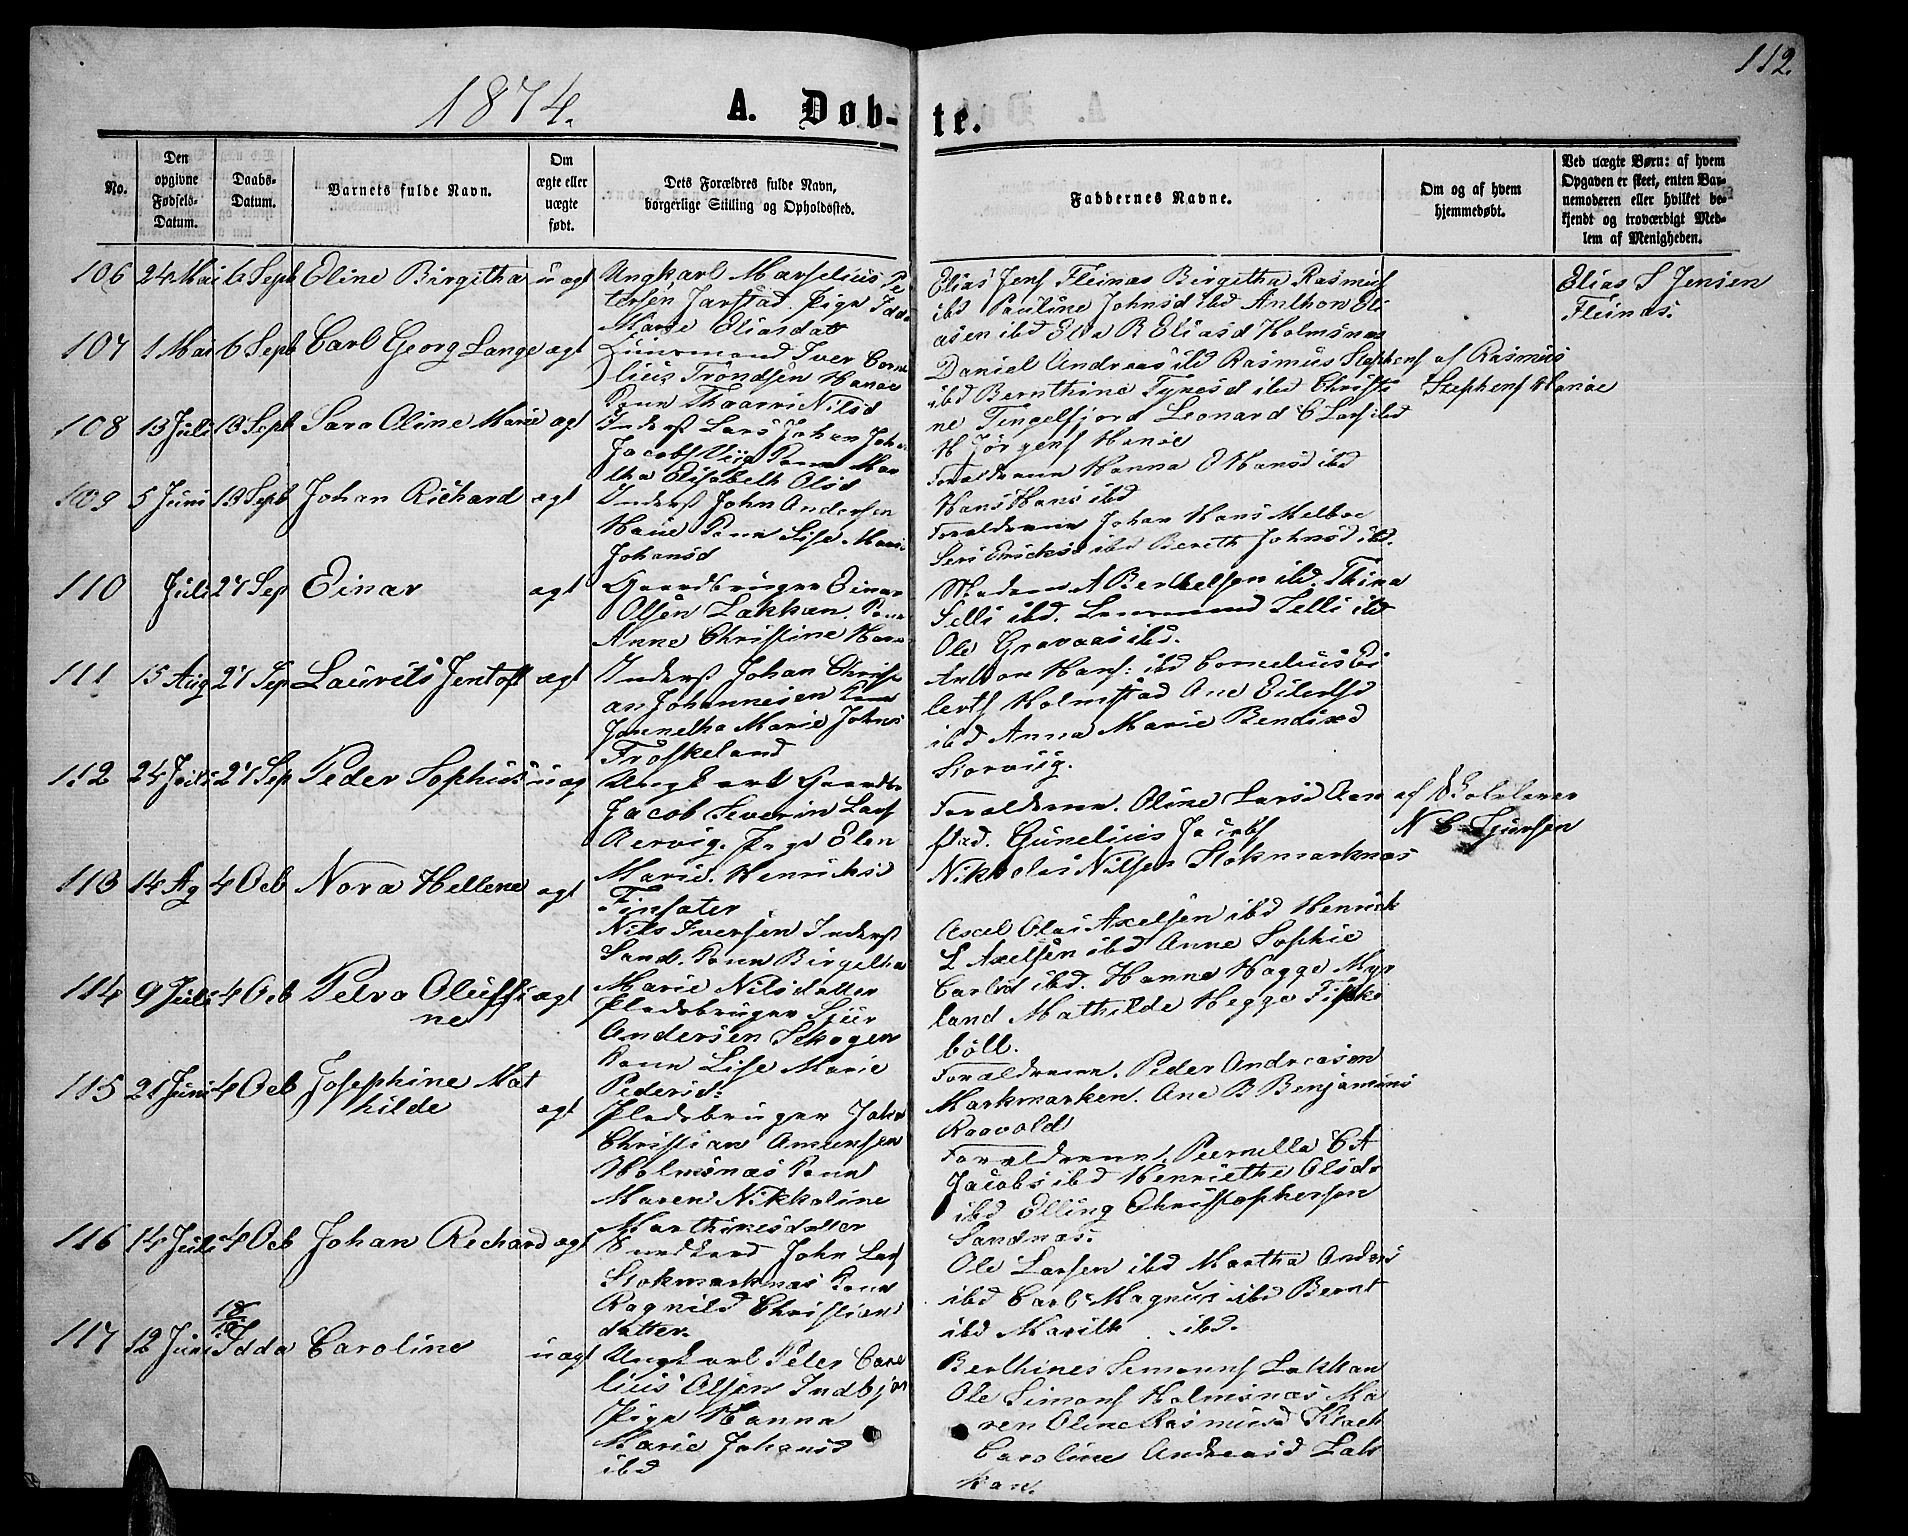 112.
1874.
A. Døb-te.
No.
Den opgivne Fødsels-Datum.
Daabs-Datum.
Barnets fulde Navn.
Om ægte eller uægte født.
Dets Forældres fulde Navn, borgerlige Stilling og Opholdssted.
Faddernes Navne.
Om og af hvem hjemmedøbt.
Ved uægte Børn: af hvem Opgaven er skeet, enten Barnemoderen eller hvilket bekjendt og troværdigt Medlem af Menigheden.
106 24 Mai 6 Sept Eline Birgitha uægt
Ungkarl Marselius Pe
tersen Jarstad Pige Idda
Marie Eliasdatt
Elias Jens Fleinas Birgitha Rasmus
ibd Pauline Johnsd ibd Anthon Eli
asen ibd Elea R Eliasd Holmsnas
Elias S Jensen
Fleinas.
107 1 Mai 6 Sept Carl Georg Lange ægt
Huusmand Iver Corne
lius Trondsen Hanøe
Kone Thaarni Nilsd
Daniel Andreas ibd Rasmus Stephens
ibd Bernthine Tyresd ibd Christi
ne Tingelfjord Leonard C Lars ibd
H Jørgens Hanøe
af Rasmus
Stephens Hanøe
108 13 Juli 13 Sept Sara Oline Marie ægt
Inderst Lars Johan Joha
Jacobs Viig Kone Mar
tha Elisabeth Olsd
Foraldrene Hanna O Hansd ibd
Hans Hans ibd
109 5 Juni 13 Sept Johan Richard ægt
Inderst John Andersen
Haue Kone Lise Marie
Johansd
Foraldrene Johan Hans Melboe
Seri Ericksd ibd Berith Johnsd ibd.
110 Juli 27 Sep Einar ægt
Gaardbruger Einar
Olsen Lakkaen. Kone
Anne Christine Hans
Madam A Berthelsen ibd. Thina
Selli ibd. Lensmand Selli ibd
Ole Gravaas ibd.
111 15 Aug 27 Sep Laurits Jentoft ægt
Inderst Johan Christi
an Johannesen Kone
Jannetha Marie Johns
Froskeland
Anton Hans: ibd Cornelius Ei
lerts Holmstad Ane Eilertsd
ibd Anna Marie Bendixd
Storviig.
112 24 Juli 27 Sep Peder Sophus uægt
Ungkarl Gaardbr
Jacob Severin Lars
Rervig. Pige Elen
Marie. Henriksd
Finsater
Foraldrene. Oline Larsd Aan
stad. Gunelius Jacobs
Nikkolai Nilsen Stokmarknæs
af Skolelærer
N C Sjursen
113 14 Ag 4 Ocb Nora Hellene ægt
Nils Iversen Inderst
Sand. Kone Birgitha
Marie Nilsdatter
Axel Olai Axelsen ibd Henrick
L Axelsen ibd Anne Sophie
Carlsd ibd. Hanne Hagge Myr
land Mathilde Hegge Fiske
bøll.
114 9 Juli 4 Ocb Petra Oluffi ægt
ne
Pladsbruger Sjur
Andersen Skogen
Kone Lise Marie
Pedersd:
Foraldrene. Peder Andreasen
Markmarken. Ane B Benjamins
Roovold
115 21 Juni 4 Ocb Josephine Mat
hilde ægt
Pladsbruger Johan
Christian Amunsen
Holmsnas Kone
Maren Nikkoline
Marthinesdatter
Foraldrene. Peernella C A
Jacobs ibd Henriethe Olsdr
ibd Elling Christophersen
Sandnas.
116 14 Juli 4 Ocb Johan Rechard ægt
John Lars
Stokmarknas Kone
Ragnild Christians
datter.
Ole Larsen ibd Martha Anders
ibd Carl Magnus ibd Bernt
ibd Marith ibd.
117 12 Juni 18/10 Idda Caroline uægt
Ungkarl Peter Corne
lius Olsen Indbjor
Pige Hanna
Marie Johansd
ibd
Berthines Simons Lakkan
Ole Simons Holmsnas Ma
ren Oline Rasmusd Klack
Caroline Andreasd Lak
kan.